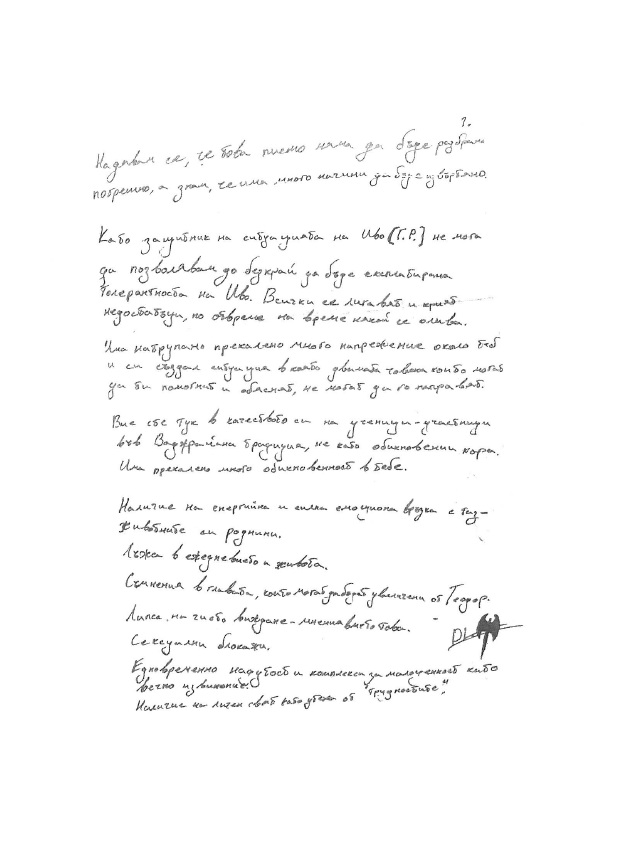 1.
Надявам се, че това писмо няма да бъде разбрано
погрешно, а знам, че има много начини да бъде извъртано.
Като защитник на ситуацията на Иво (Г.Р.) не мога
да позволявам до безкрай да бъде експлатирана
толерантността на Иво. Всички се лигавят и крият
недостатъци, но отвреме на време някой се олива.
Има натрупано прекалено много напрежение около теб
и си създал ситуация в която двамата човека които могат
да ти помогнат и обяснят, не могат да го направят.
Вие сте тук в качеството си на ученици-участници
във Ваджраяна традиция, не като обикновени хора.
Има прекалено много обикновенност в тебе.
Наличие на енергийна и силна емоциона връзка с таз-
животните си роднини.
Лъжа в ежедневието и живота.
Съмнения в главата, които могат да бъдат увеличени от Теодор.
Липса на чисто виждане - мнения вместо това.
Сексуални блокажи.
DL
Едновременно надутост и комплекс за малоценност като
вечно извинение.
Наличие на личен свят като убежище от "трудностите".